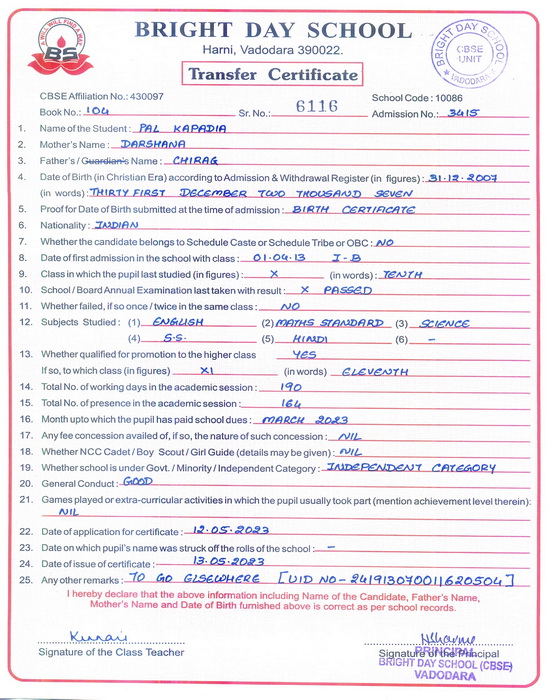 WILL WILL FIND A WAY
BS
BRIGHT DAY SCHOOL
Harni, Vadodara 390022.
Transfer Certificate
BRIGHT DAY SCHOOL
CBSE
UNIT
VADODARA
CBSE Affiliation No.: 430097 School Code : 10086
Book No.: 104 Sr. No.: 6116 Admission No.: 3415
1. Name of the Student : PAL KAPADIA
2. Mother's Name : DARSHANA
3. Father's / Guardian's Name : CHIRAG
4. Date of Birth (in Christian Era) according to Admission & Withdrawal Register (in figures) : 31.12.2007
(in words) : THIRTY FIRST DECEMBER TWO THOUSAND SEVEN
5. Proof for Date of Birth submitted at the time of admission : BIRTH CERTIFICATE
6. Nationality : INDIAN
7. Whether the candidate belongs to Schedule Caste or Schedule Tribe or OBC : NO
8. Date of first admission in the school with class : 01.04.13 I-B
9. Class in which the pupil last studied (in figures) : X (in words) : TENTH
10. School / Board Annual Examination last taken with result : X PASSED
11. Whether failed, if so once / twice in the same class : NO
12. Subjects Studied : (1) ENGLISH (2) MATHS STANDARD (3) SCIENCE
(4) S.S. (5) HINDI (6) -
13. Whether qualified for promotion to the higher class YES
If so, to which class (in figures) XI (in words) ELEVENTH
14. Total No. of working days in the academic session : 190
15. Total No. of presence in the academic session : 164
16. Month upto which the pupil has paid school dues : MARCH 2023
17. Any fee concession availed of, if so, the nature of such concession : NIL
18. Whether NCC Cadet / Boy Scout / Girl Guide (details may be given) : NIL
19. Whether school is under Govt. / Minority / Independent Category : INDEPENDENT CATEGORY
20. General Conduct : GOOD
21. Games played or extra-curricular activities in which the pupil usually took part (mention achievement level therein):
NIL
22. Date of application for certificate : 12.05.2023
23. Date on which pupil's name was struck off the rolls of the school : -
24. Date of issue of certificate : 13.05.2023
25. Any other remarks : TO GO ELSEWHERE [UID NO - 241913070011620504]
I hereby declare that the above information including Name of the Candidate, Father's Name,
Mother's Name and Date of Birth furnished above is correct as per school records.
Signature of the Class Teacher Signature of the Principal
PRINCIPAL
BRIGHT DAY SCHOOL (CBSE)
VADODARA